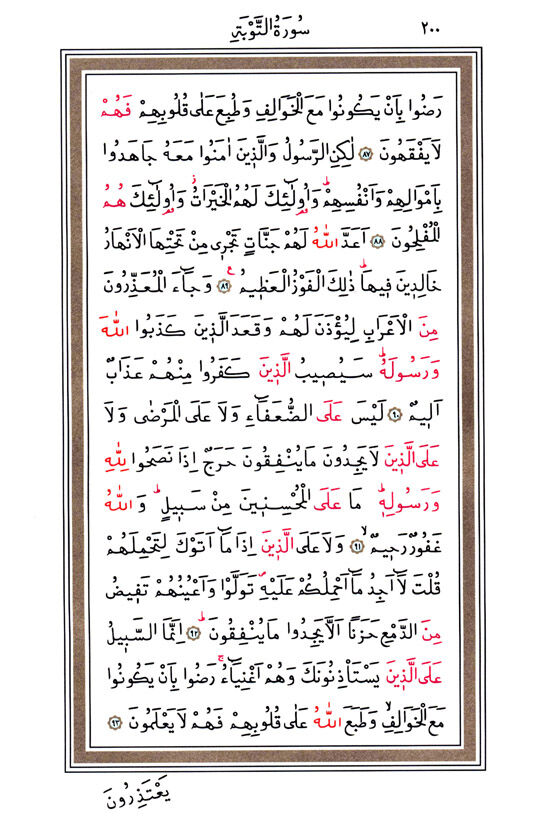 سُورَةُ التَّوْبَةِ ٢٠٠
رَضُوا بِاَنْ يَكُونُوا مَعَ الْخَوَالِفِ وَطُبِعَ عَلٰى قُلُوبِهِمْ فَهُمْ
لَا يَفْقَهُونَ ﴿٨٧﴾ لٰكِنِ الرَّسُولُ وَالَّذٖينَ اٰمَنُوا مَعَهُ جَاهَدُوا
بِاَمْوَالِهِمْ وَاَنْفُسِهِمْؕ وَاُولٰٓئِكَ لَهُمُ الْخَيْرَاتُؗ وَاُولٰٓئِكَ هُمُ
الْمُفْلِحُونَ ﴿٨٨﴾ اَعَدَّ اللّٰهُ لَهُمْ جَنَّاتٍ تَجْرٖى مِنْ تَحْتِهَا الْاَنْهَارُ
خَالِدٖينَ فٖيهَاؕ ذٰلِكَ الْفَوْزُ الْعَظٖيمُ ﴿٨٩﴾ وَجَٓاءَ الْمُعَذِّرُونَ
مِنَ الْاَعْرَابِ لِيُؤْذَنَ لَهُمْ وَقَعَدَ الَّذٖينَ كَذَبُوا اللّٰهَ
وَرَسُولَهُؕ سَيُصٖيبُ الَّذٖينَ كَفَرُوا مِنْهُمْ عَذَابٌ
اَلٖيمٌ ﴿٩٠﴾ لَيْسَ عَلَى الضُّعَفَٓاءِ وَلَا عَلَى الْمَرْضٰى وَلَا
عَلَى الَّذٖينَ لَا يَجِدُونَ مَا يُنْفِقُونَ حَرَجٌ اِذَا نَصَحُوا لِلّٰهِ
وَرَسُولِهٖؕ مَا عَلَى الْمُحْسِنٖينَ مِنْ سَبٖيلٍؕ وَاللّٰهُ
غَفُورٌ رَحٖيمٌۙ ﴿٩١﴾ وَلَا عَلَى الَّذٖينَ اِذَا مَٓا اَتَوْكَ لِتَحْمِلَهُمْ
قُلْتَ لَٓا اَجِدُ مَٓا اَحْمِلُكُمْ عَلَيْهِࣕ تَوَلَّوْا وَاَعْيُنُهُمْ تَفٖيضُ
مِنَ الدَّمْعِ حَزَنًا اَلَّا يَجِدُوا مَا يُنْفِقُونَؕ ﴿٩٢﴾ اِنَّمَا السَّبٖيلُ
عَلَى الَّذٖينَ يَسْتَاْذِنُونَكَ وَهُمْ اَغْنِيَٓاءُۚ رَضُوا بِاَنْ يَكُونُوا
مَعَ الْخَوَالِفِۙ وَطَبَعَ اللّٰهُ عَلٰى قُلُوبِهِمْ فَهُمْ لَا يَعْلَمُونَ ﴿٩٣﴾
يَعْتَذِرُونَ